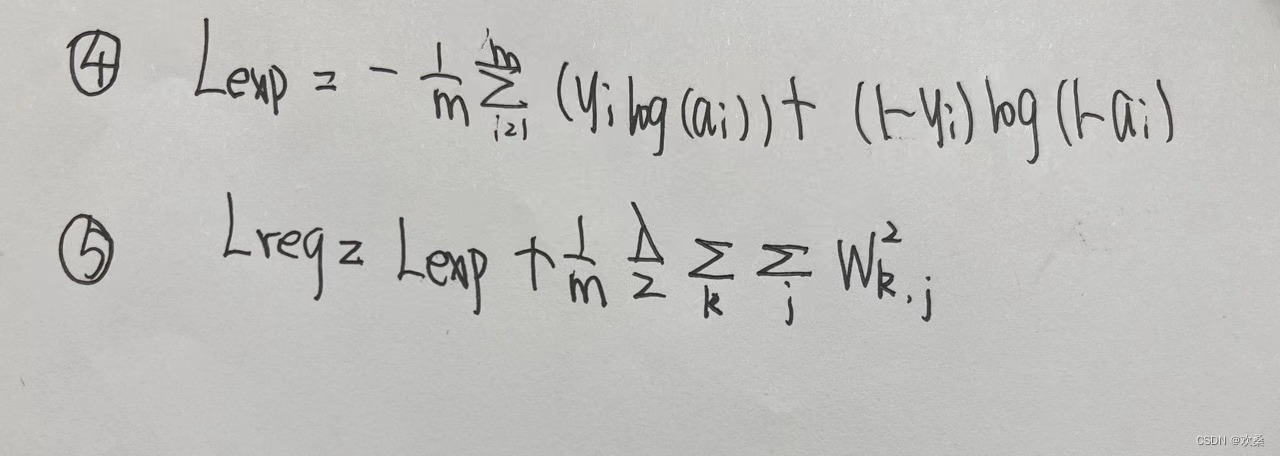 ④ Lexp = - 1/m Σ_{i=1}^{m} (yi log(ai)) + (1-yi) log(1-ai)
⑤ Lreg = Lexp + 1/m λ/2 Σ_k Σ_j W²_{k,j}
CSDN @欢桑